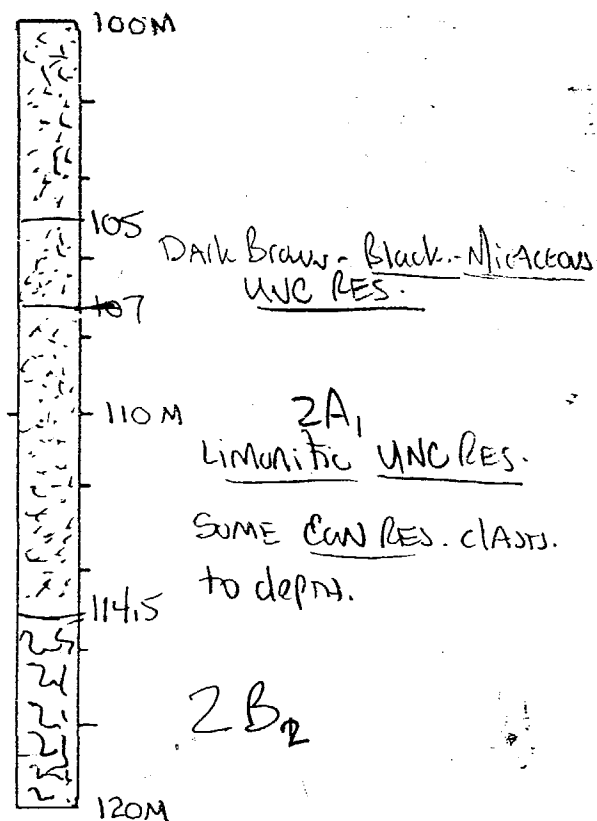 100M
105
Dark Brown - Black - Micaceous
UNC RES.
107
110 M
2A1
Limonitic UNC RES.
SOME CON RES. clasts.
to depth.
114.5
2B2
120M